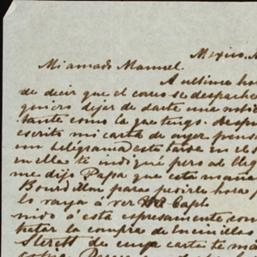 Mexico,
Mi amado Manuel.
A ultima ho
de decir que el correo se despach
quiero dejar de darte una noti
tante como la que tengo. Despu
escrita mi carta de ayer pense
un telegrama esta tarde en el s
en ella te indiqué pero al lleg
me dijo Papa que esta maña
para pedirle hora p
lo vaya á ver Capt
nido ó está espresamente com
tratar la compra de
Sterett de cuya carta te ma